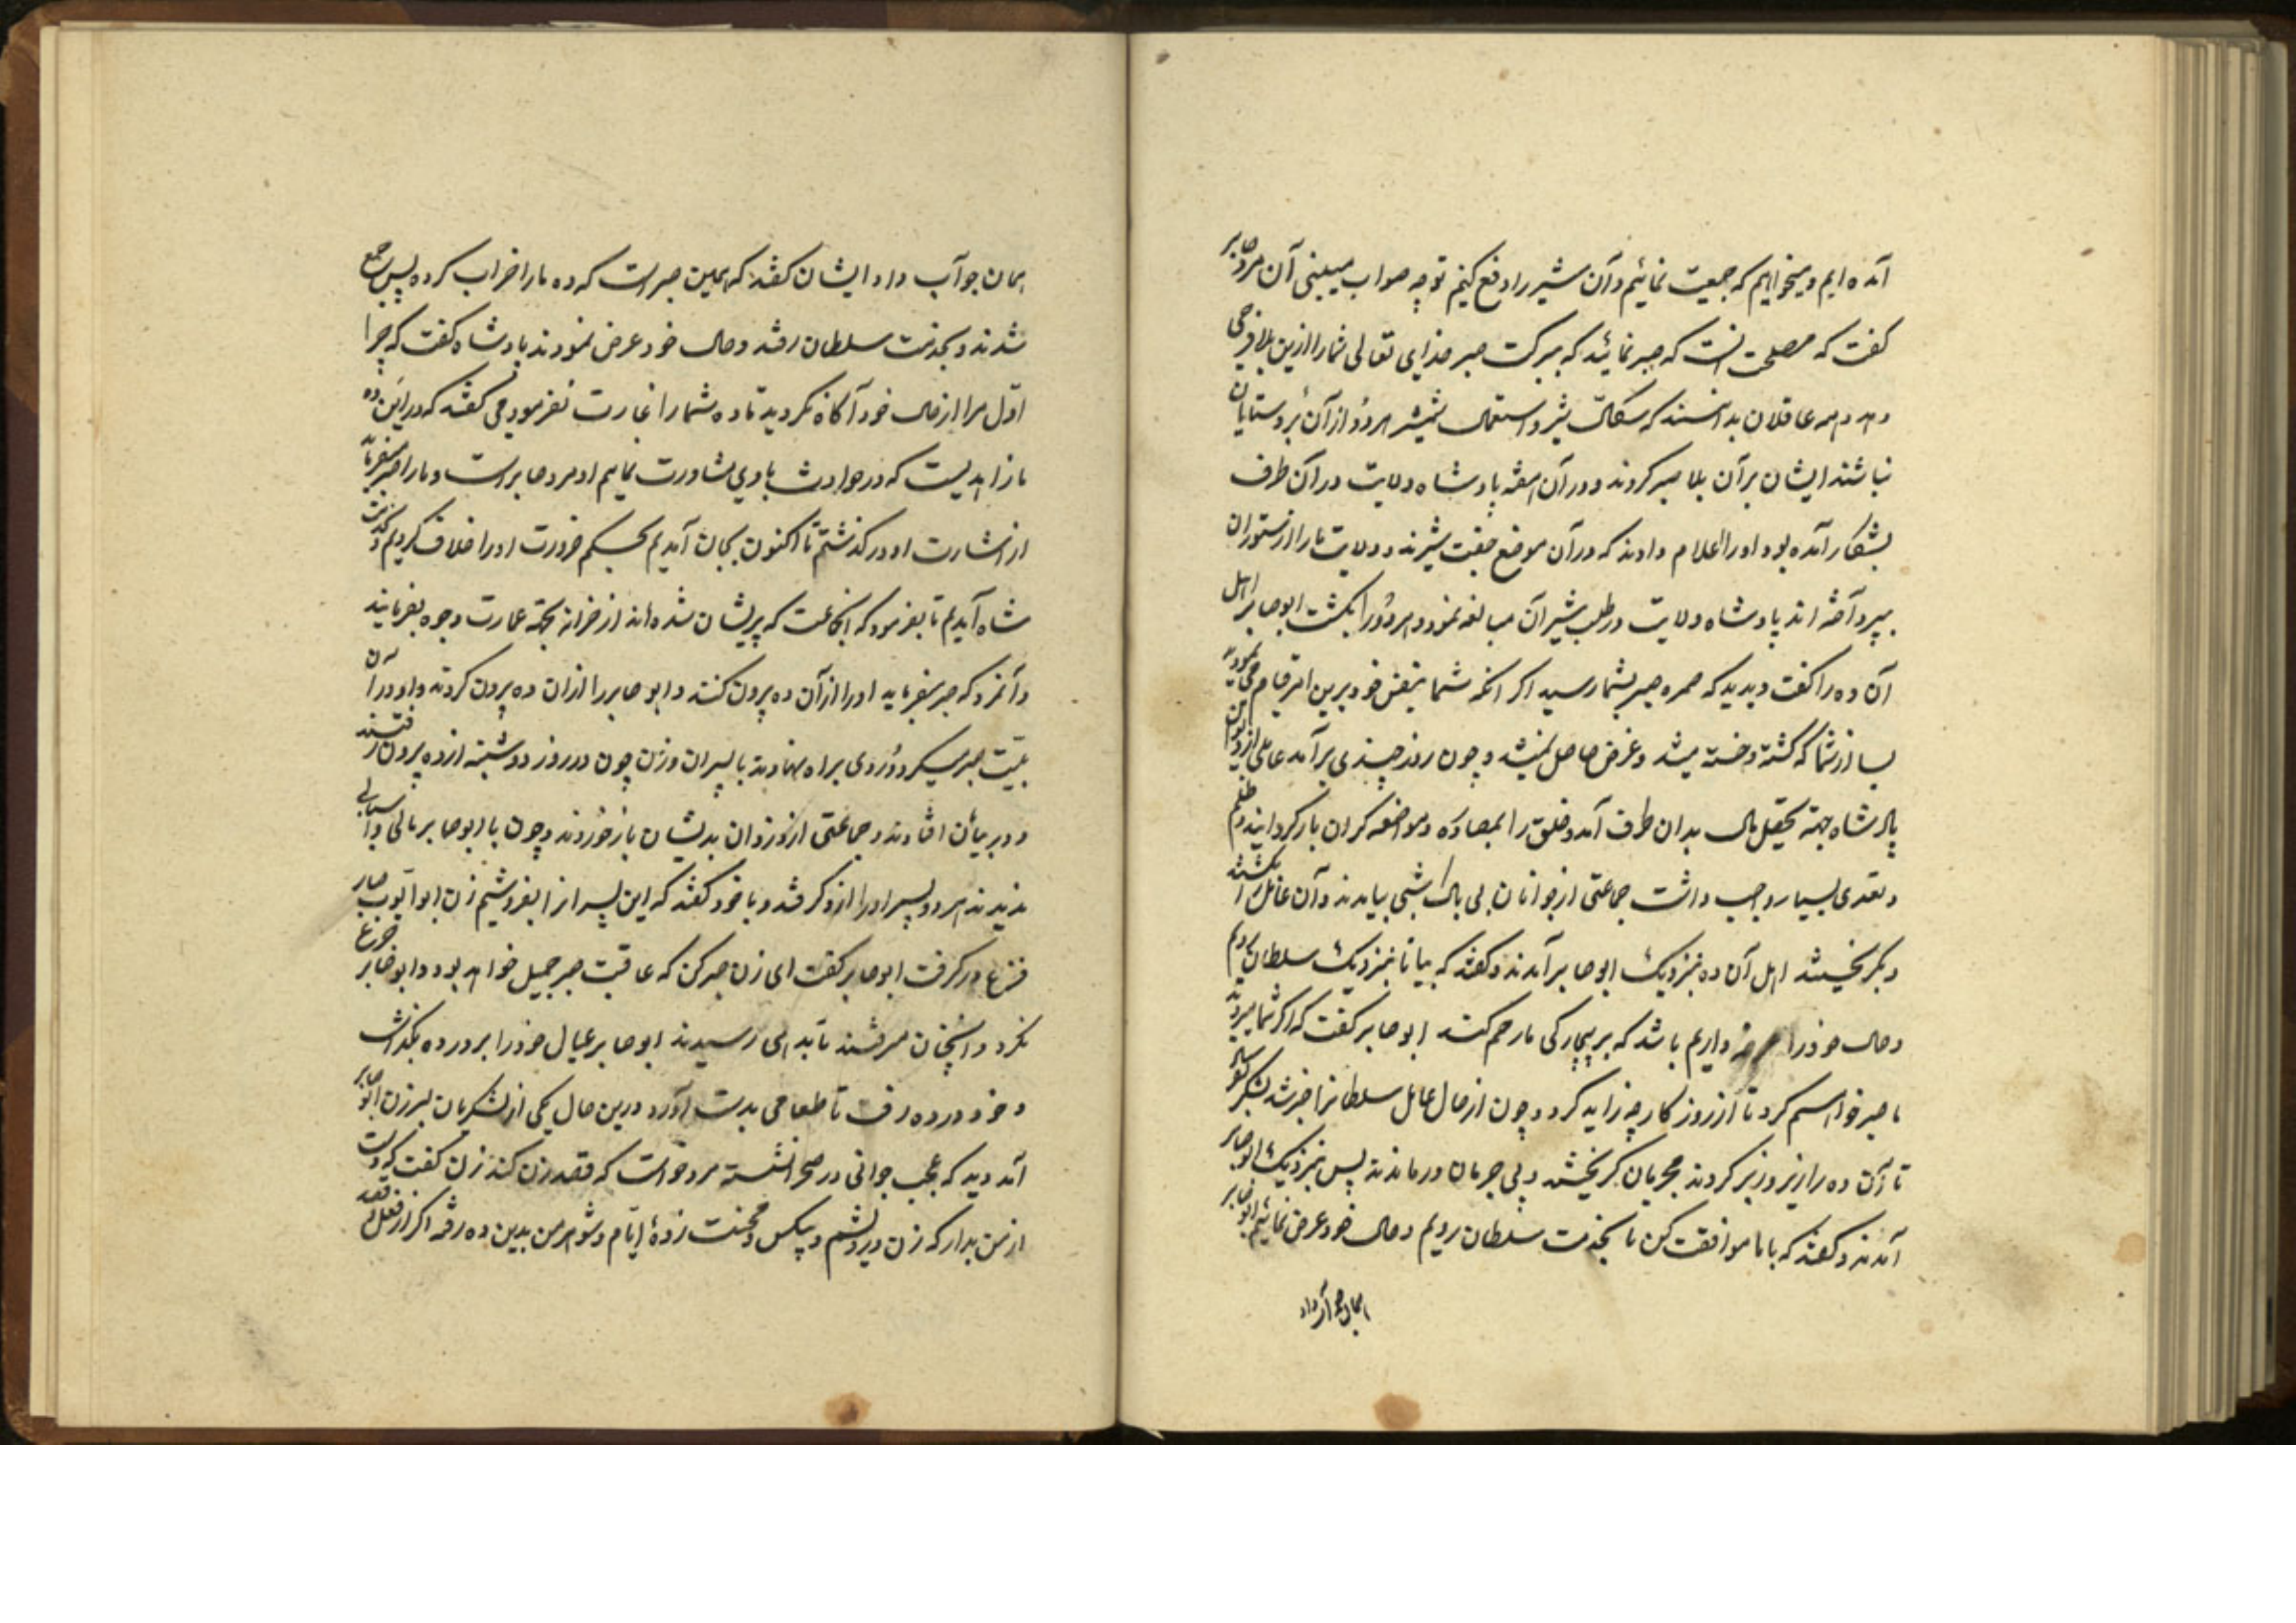 آمده ایم و میخواهیم که جمعیت نمائیم و آن شیر را دفع کنیم تو چه صواب میبینی آن مرد صابر
کفت که مصلحت آنست که صبر نمائید که ببرکت صبر خدای تعالی شما را ازین بلا فرجی
دهد و همه عاقلان بدانستند که سکالت شیر و استعمال شمشیر هر دو از آن روستایان
نباشد ایشان بر آن بلا صبر کردند و در آن هفته پادشاه ولایت در آن طرف
بشکار آمده بود او را اعلام دادند که در آن موضع جفت شیرند و ولایت ما را از ستوران
بپرداخته اند پادشاه ولایت در طلب شیران مبالغه نمود و هر دو را بکشت ابوصابر اهل
آن ده را کفت دیدید که ثمره صبر بشما رسید اکر آنکه شما بنفس خود برین امر قیام می نمودید
بسا از شما که کشته و خسته میشد و غرض حاصل نمیشد و چون روز چندی بر آمد عاملی از دیوان
پادشاه جهة تحصیل مال بدان طرف آمد و خلق را بمصادره و مواضعه کران بار کردانید و ظلم
و تعدی بسیار واجب داشت جماعتی از جوانان بی باک شبی بیامدند و آن عامل را بکشتند
و بکریختند اهل آن ده بنزدیک ابوصابر آمدند و کفتند که بیا تا بنزدیک سلطان رویم
و حال خود را عرضه داریم باشد که بر بیچارکی ما رحم کند ابوصابر کفت که اکر شما میروید
ما صبر خواهم کرد تا از روزکار چه زاید کرد و چون از حال عامل سلطان را خبر شد لشکر بفرستاد
تا آن ده را زیر و زبر کردند مجرمان کریختند و بی جرمان درماندند پس بنزدیک ابوصابر
آمدند و کفتند که با ما موافقت کن تا بخدمت سلطان رویم و حال خود عرض نمائیم ابوصابر
همان جواب داد
همان جواب داد و ایشان کفتند که همین صبر است که ده ما را خراب کرد پس جمع
شدند و بخدمت سلطان رفتند و حال خود عرض نمودند پادشاه کفت که چرا
اول مرا از حال خود آکاه نکردید تا ده شما را غارت نفرمودمی کفتند که در این ده
ما زاهدیست که در حوادث با وی مشاورت نماییم او مرد صابر است و ما را صبر فرماید
از اشارت او در نکذشتیم تا اکنون بجان آمدیم بحکم ضرورت او را خلاف کردیم و بخدمت
شاه آمدیم تا بفرمود که آنجماعت که پریشان شده اند از خزانه بجهة عمارت وجوه بفرمایند
و آنمرد که صبر میفرماید او را از آن ده بیرون کنند و ابوصابر را از آن ده بیرون کردند و او در آن
بلیت صبر میکرد و روی براه نهادند با پسران و زن چون در روز دو شنبه از ده بیرون رفتند
و در بیابان افتادند و جماعتی از دزدان بدیشان باز خوردند و چون با ابوصابر مالی و اسبابی
ندیدند هر دو پسر او را ازو کرفتند و با خود کفتند که این پسران را بفروشیم زن ابو ایوب صابر
فزع در کرفت ابوصابر کفت ای زن صبر کن که عاقبت صبر جمیل خواهد بود و ابوصابر جزع
نکرد و آنچنان میرفتند تا بدهی رسیدند ابوصابر عیال خود را بر در ده بکذاشت
و خود در ده رفت تا طعامی بدست آورد درین حال یکی از لشکریان بر زن ابوصابر
آمد دید که عجب جوانی در صحرا نشسته مرد خواست که قصد زن کند زن کفت که دست
از من بدار که زن درویشم و بیکس و محنت زدهٔ ایام و شوهر من بدین ده رفته اکر از فعل تو